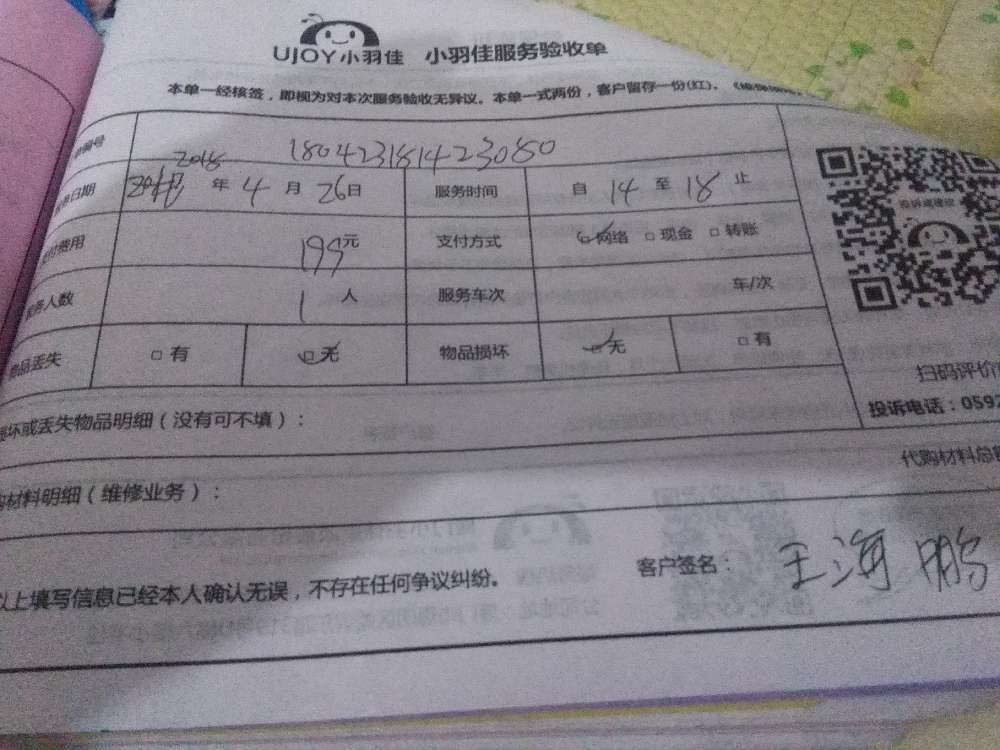 UJOY小羽佳 小羽佳服务验收单
本单一经核签，即视为对本次服务验收无异议。本单一式两份，客户留存一份(红)。
编号 180423181423080
日期 2018 年 4 月 26 日 服务时间 自 14 至 18 止
费用 199 元 支付方式 □网络 □现金 □转账
人数 1 人 服务车次 车/次
物品丢失 □有 □无 物品损坏 □无 □有
扫码评价
坏或丢失物品明细（没有可不填）：
投诉电话：0592
代购材料总
购材料明细（维修业务）：
以上填写信息已经本人确认无误，不存在任何争议纠纷。 客户签名： 王海鹏